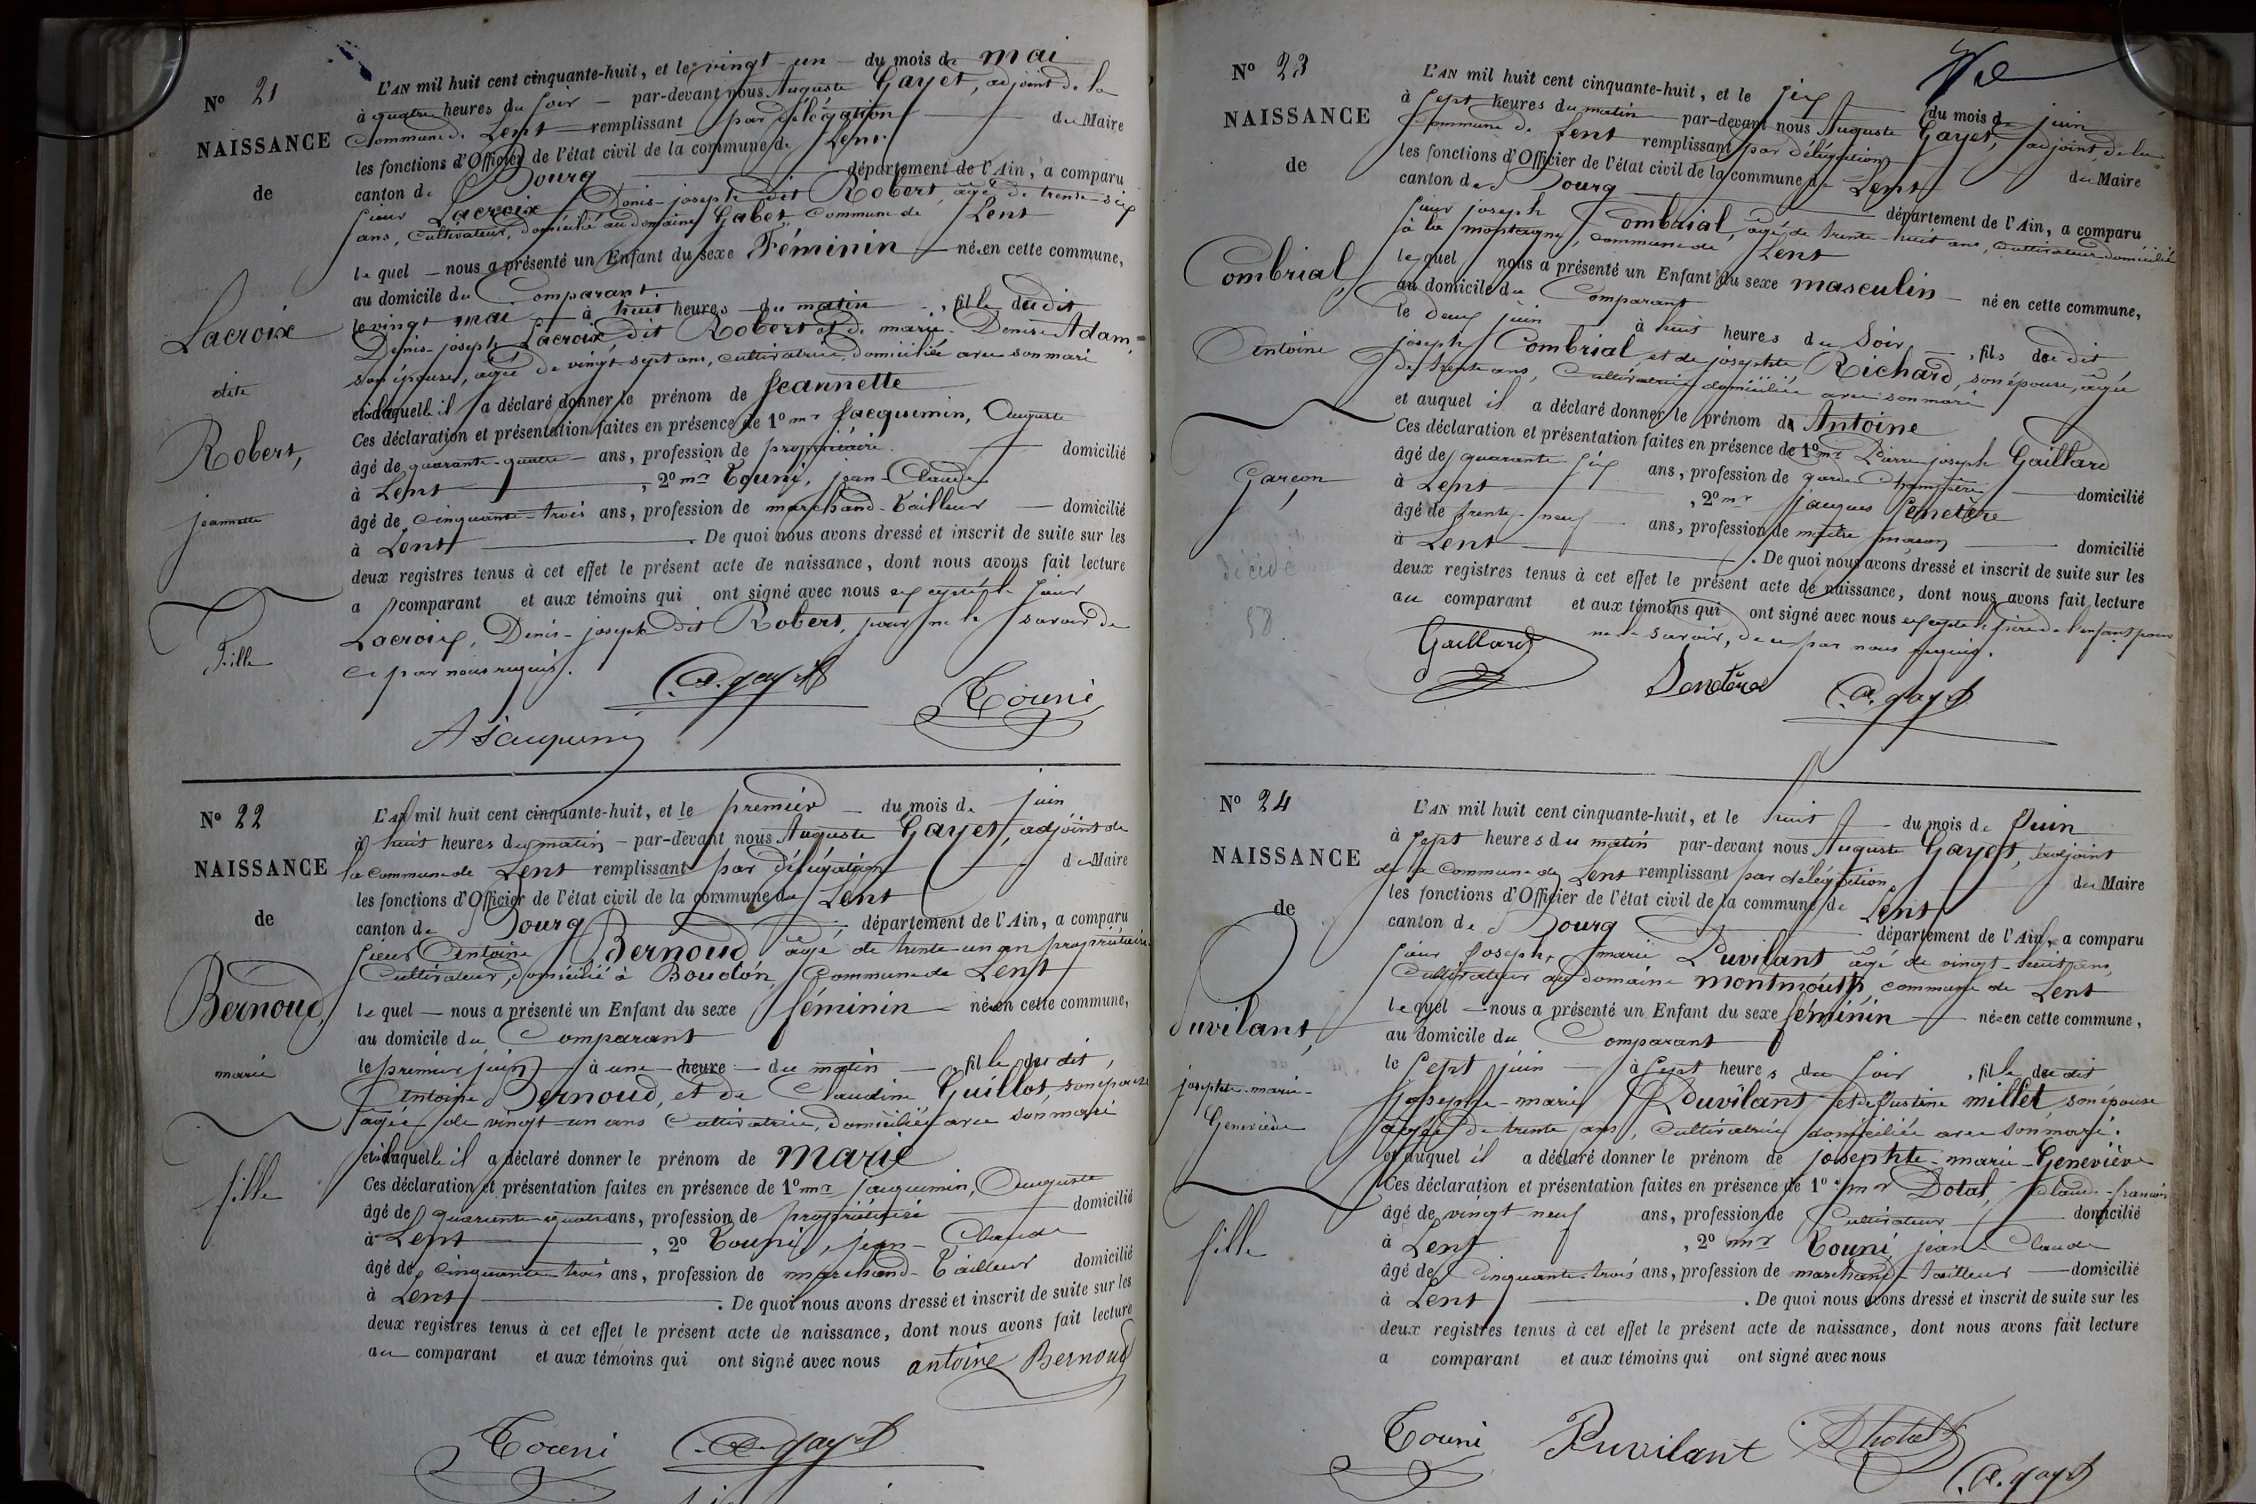 N° 21
NAISSANCE
de
Lacroix
dite
Robert,
jeannette
Fille
L'AN mil huit cent cinquante-huit, et le vingt-un du mois de mai
à quatre heures du soir par-devant nous Auguste Gayet, adjoint de la
Commune de Lent remplissant par délégation du Maire
les fonctions d'Officier de l'état civil de la commune de Lent
canton de Bourg département de l'Ain, a comparu
sieur Lacroix Denis-joseph dit Robert, âgé de trente-six
ans, cultivateur, domicilié au domaine Gabet, commune de Lent
le quel nous a présenté un Enfant du sexe Féminin née en cette commune,
au domicile du Comparant
le vingt mai à huit heures du matin, fille du dit
Denis-joseph Lacroix dit Robert et de marie Denise Adam,
son épouse, agée de vingt-sept ans, cultivatrice, domiciliée avec son mari
et à laquelle il a déclaré donner le prénom de Jeannette
Ces déclaration et présentation faites en présence de 1° mr Jacquemin, Auguste
âgé de quarante-quatre ans, profession de propriétaire domicilié
à Lent, 2° mr Touni, jean-Claude
âgé de cinquante-trois ans, profession de marchand-tailleur domicilié
à Lent. De quoi nous avons dressé et inscrit de suite sur les
deux registres tenus à cet effet le présent acte de naissance, dont nous avons fait lecture
a comparant et aux témoins qui ont signé avec nous excepté le sieur
Lacroix, Denis-joseph dit Robert, pour ne le savoir de
ce par nous requis.
A. gayet
Touni
A Jacquemin
N° 22
NAISSANCE
de
Bernoud,
marie
fille
L'AN mil huit cent cinquante-huit, et le premier du mois de juin
à huit heures du matin par-devant nous Auguste Gayet, adjoint de
la commune de Lent remplissant par délégation du Maire
les fonctions d'Officier de l'état civil de la commune de Lent
canton de Bourg, département de l'Ain, a comparu
sieur Antoine Bernoud âgé de trente-un an propriétaire
Cultivateur, domicilié à Boudon, Commune de Lent
le quel nous a présenté un Enfant du sexe féminin née en cette commune,
au domicile du Comparant
le premier juin à une heure du matin, fille du dit,
Antoine Bernoud, et de Claudine Guillot, son épouse
agée de vingt-un ans cultivatrice, domiciliée avec son mari
et à laquelle il a déclaré donner le prénom de marie
Ces déclaration et présentation faites en présence de 1° mr jacquemin, Auguste
âgé de quarante-quatre ans, profession de propriétaire domicilié
à Lent, 2° Touni, jean-Claude
âgé de cinquante-trois ans, profession de marchand-tailleur domicilié
à Lent. De quoi nous avons dressé et inscrit de suite sur les
deux registres tenus à cet effet le présent acte de naissance, dont nous avons fait lecture
au comparant et aux témoins qui ont signé avec nous antoine Bernoud
Touni A. gayet
N° 23
NAISSANCE
de
Combrial,
Antoine
Garçon
décédé
58
L'AN mil huit cent cinquante-huit, et le six du mois de juin
à sept heures du matin par-devant nous Auguste Gayet, adjoint de la
Commune de Lent remplissant par délégation du Maire
les fonctions d'Officier de l'état civil de la commune de Lent
canton de Bourg département de l'Ain, a comparu
sieur joseph Combrial, agé de trente-huit ans, cultivateur domicilié
à la montagne, commune de Lent
le quel nous a présenté un Enfant du sexe masculin né en cette commune,
au domicile du Comparant
le deux juin à huit heures du Soir, fils du dit
joseph Combrial et de josephte Richard, son épouse, agée
de trente ans, Cultivatrice domiciliée avec son mari
et auquel il a déclaré donner le prénom de Antoine
Ces déclaration et présentation faites en présence de 1° mr Pierre-joseph Gaillard
âgé de quarante-six ans, profession de garde Champêtre domicilié
à Lent, 2° mr jacques Senetère
âgé de trente-neuf ans, profession de maître maçon domicilié
à Lent. De quoi nous avons dressé et inscrit de suite sur les
deux registres tenus à cet effet le présent acte de naissance, dont nous avons fait lecture
au comparant et aux témoins qui ont signé avec nous excepté le père de l'enfant pour
ne le savoir, de ce par nous requis.
Gaillard
Senetère A. gayet
N° 24
NAISSANCE
de
Puvilant,
josephte-marie-
Geneviève
fille
L'AN mil huit cent cinquante-huit, et le huit du mois de Juin
à sept heures du matin par-devant nous Auguste Gayet, adjoint
de la Commune de Lent remplissant par délégation du Maire
les fonctions d'Officier de l'état civil de la commune de Lent
canton de Bourg département de l'Ain, a comparu
sieur Joseph, marie Puvilant âgé de vingt-huit ans,
Cultivateur au domaine montmouth commune de Lent
le quel nous a présenté un Enfant du sexe féminin née en cette commune,
au domicile du Comparant
le sept juin à sept heures du soir, fille du dit
Joseph-marie Puvilant et de Justine millet, son épouse
agée de trente ans, cultivatrice domiciliée avec son mari.
et auquel il a déclaré donner le prénom de josephte-marie-Geneviève
Ces déclaration et présentation faites en présence de 1° mr Dotal, Claude-françois
âgé de vingt-neuf ans, profession de Cultivateur domicilié
à Lent, 2° mr Touni jean-Claude
âgé de cinquante-trois ans, profession de marchand-tailleur domicilié
à Lent. De quoi nous avons dressé et inscrit de suite sur les
deux registres tenus à cet effet le présent acte de naissance, dont nous avons fait lecture
a comparant et aux témoins qui ont signé avec nous
Touni Puvilant
A. gayet